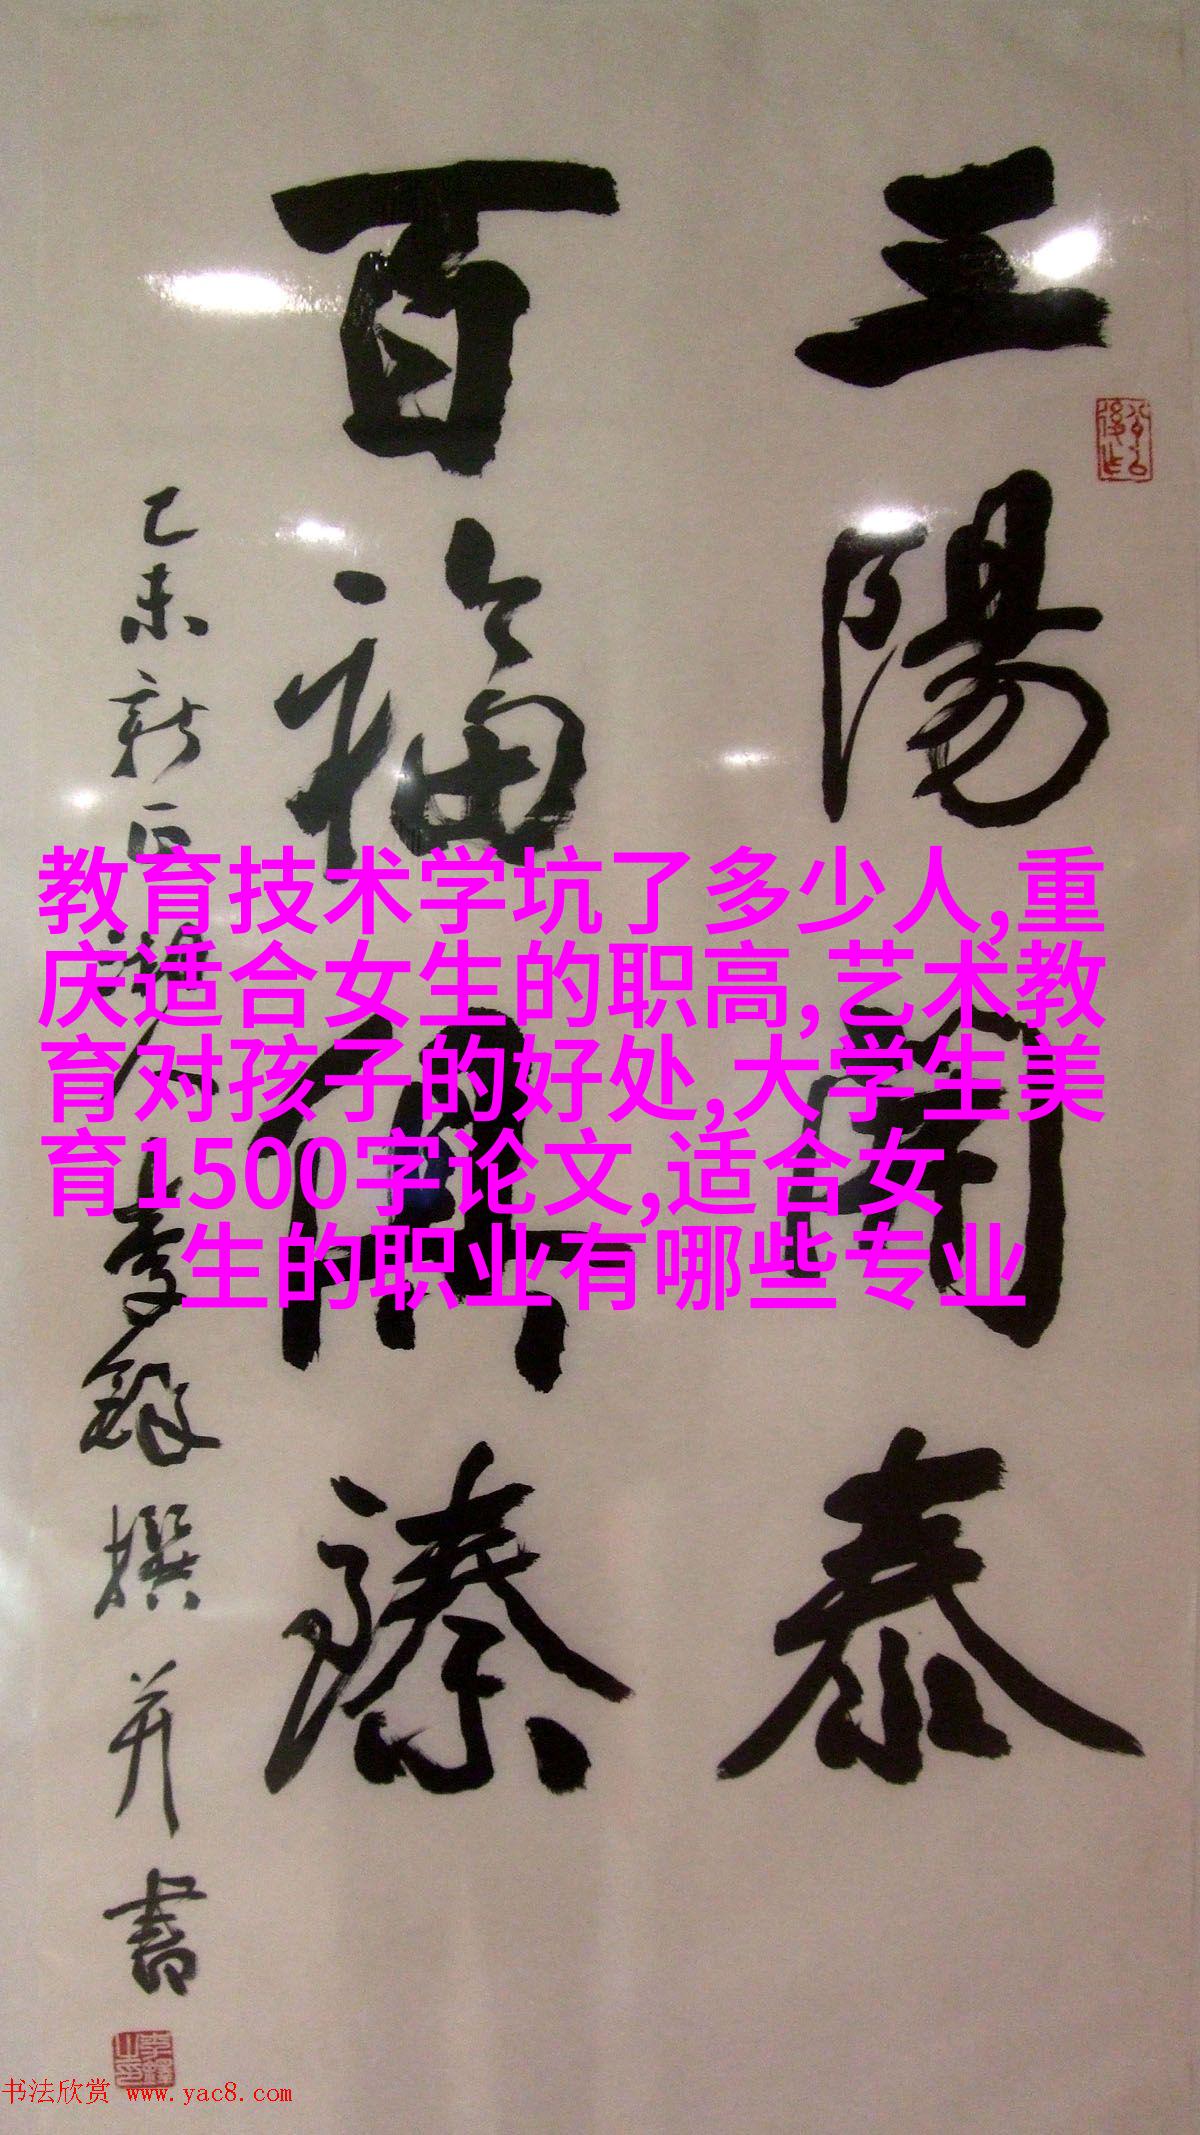 三陽開泰
百福俱臻
乙未新正
李鐸撰并書
教育技术学坑了多少人,重
庆适合女生的职高,艺术教
育对孩子的好处,大学生美
育1500字论文,适合女
生的职业有哪些专业
书法欣赏 www.yac8.com